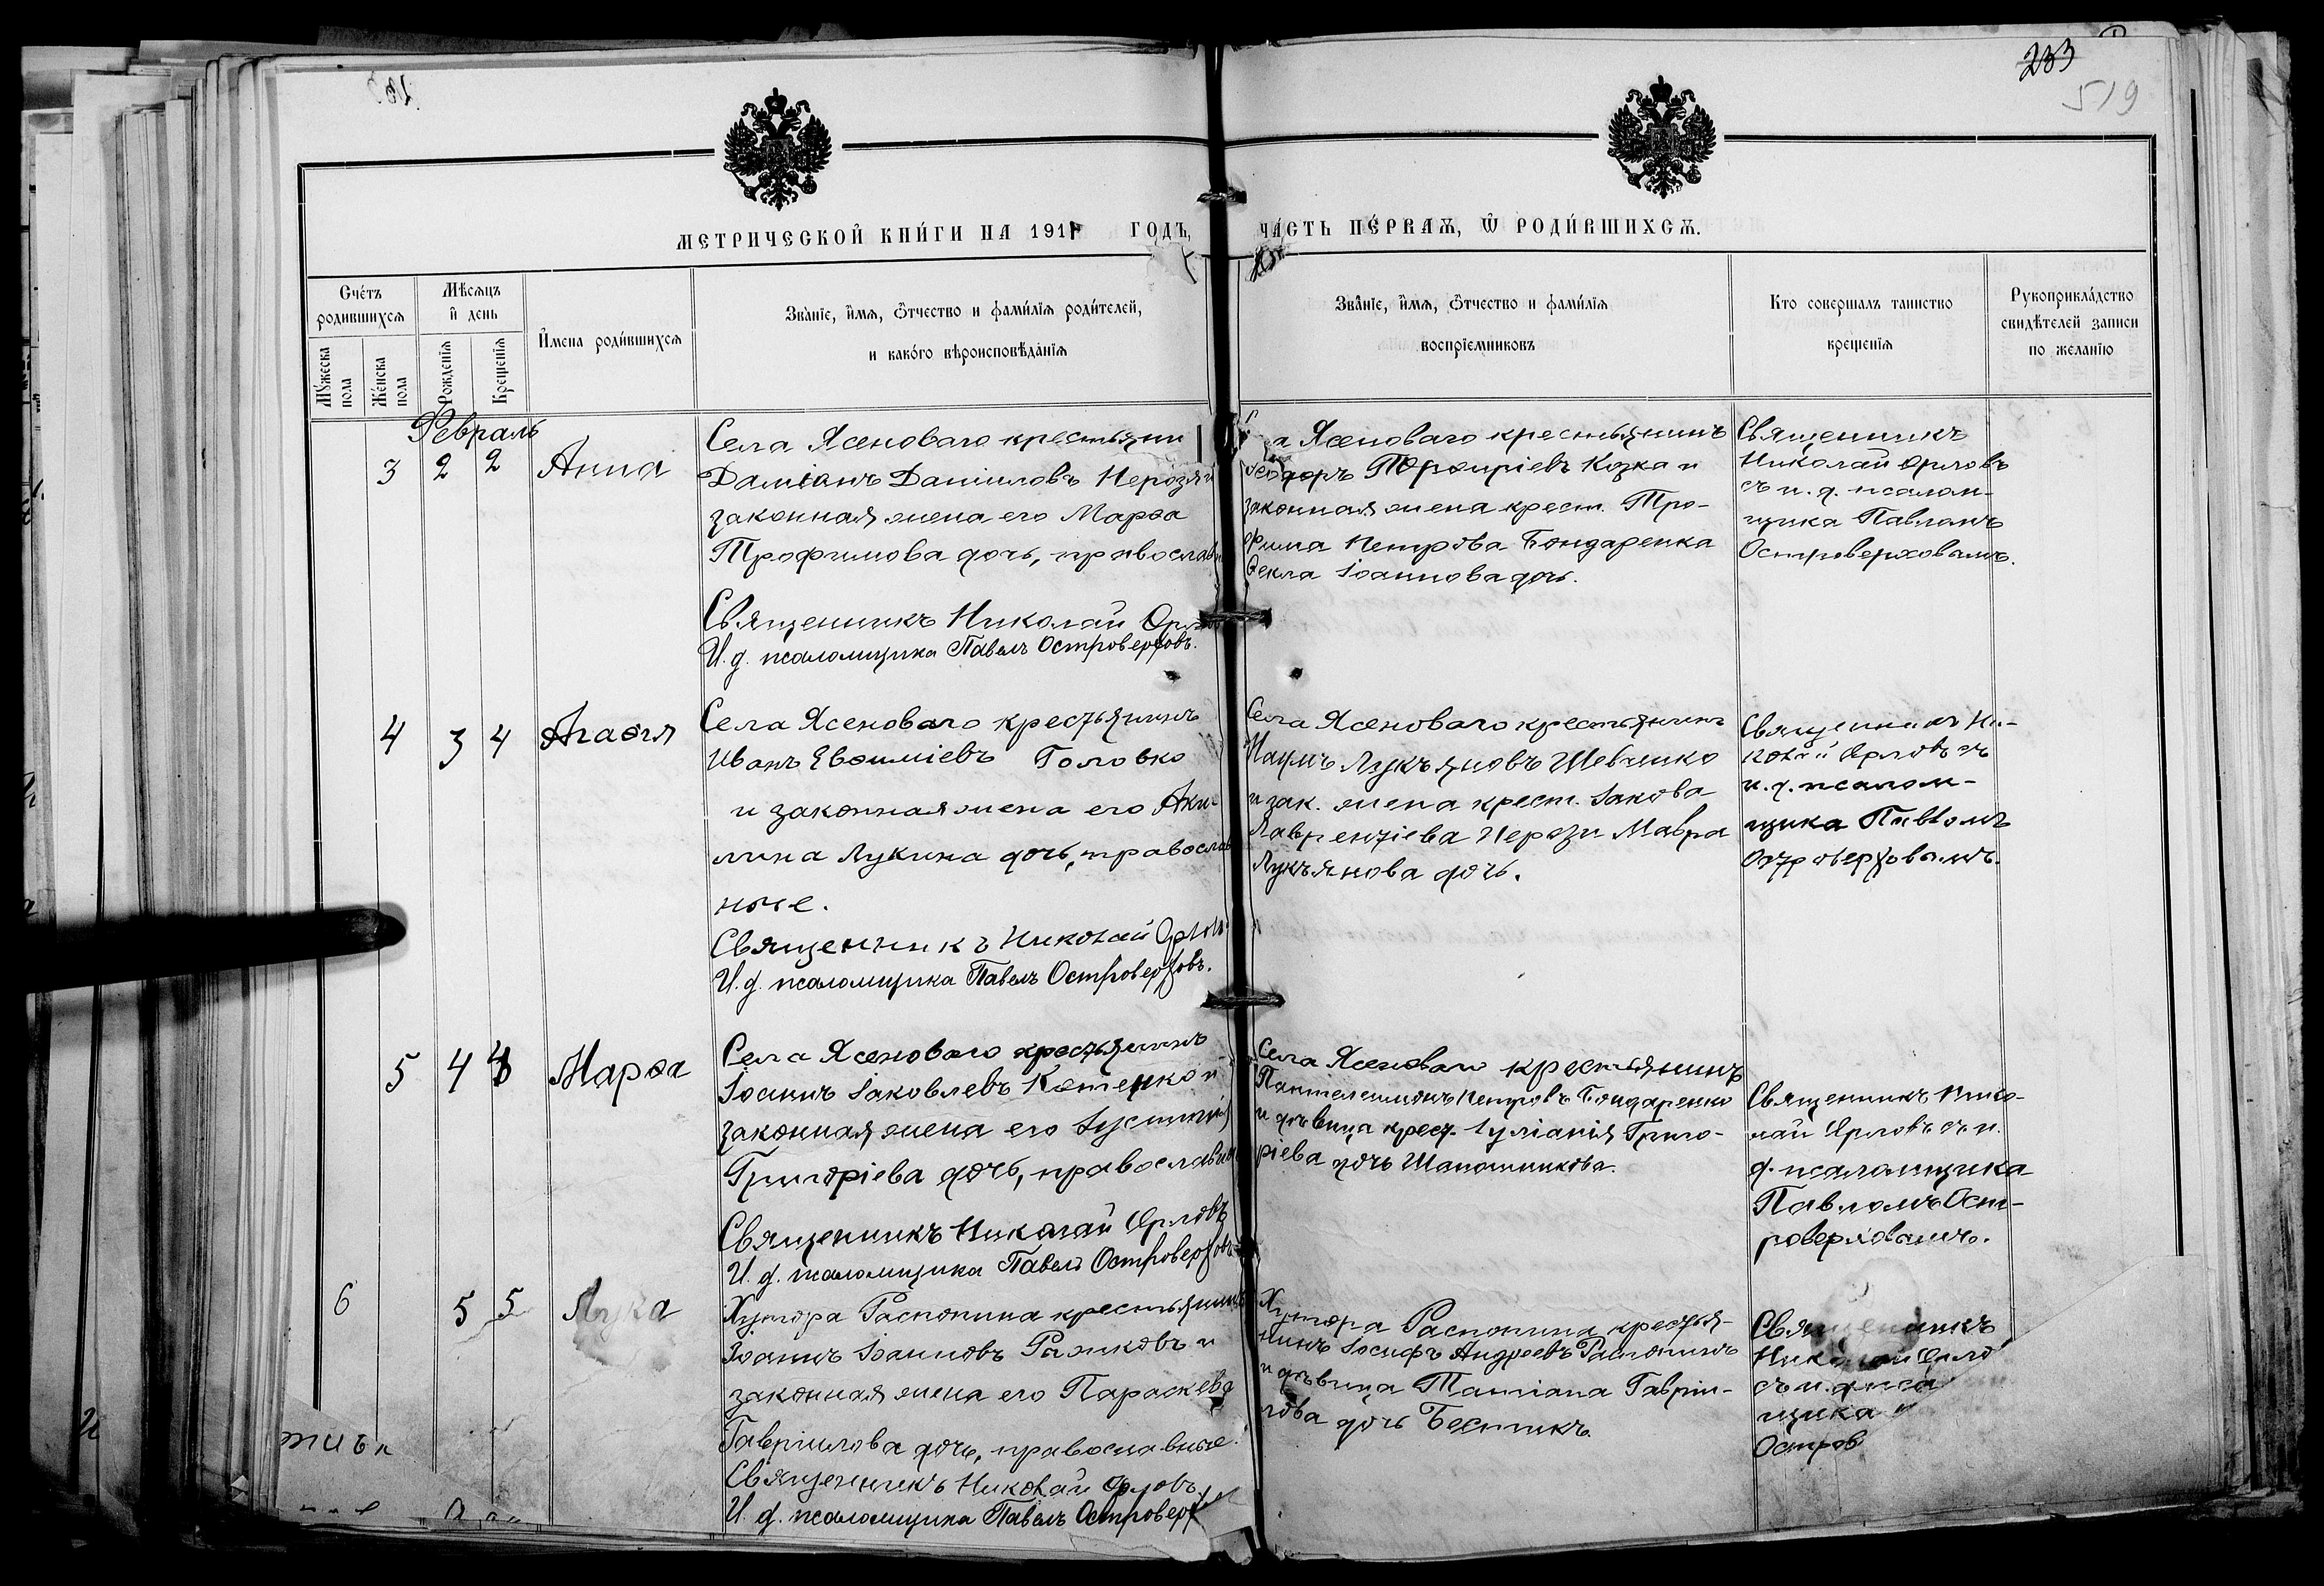 233
519
МЕТРИЧЕСКОЙ КНИ́ГИ НА 1917 ГОДЪ, ЧА́СТЬ ПЕ́РВАѦ, Ѿ РОДИ́ВШИХСѦ.
Сче́тъ родившихсѧ
Мꙋжеска пола
Же́нска пола
Мѣсѧцъ и́ день
Рожденїѧ
Крещенїѧ
И́мена роди́вшихсѧ
Зва́нїе, и́мѧ, ѻ́тчество и фами́лїѧ роди́телей,
и како́го вѣроисповѣ́данїѧ
Зва́нїе, и́мѧ, ѻ́тчество и фами́лїѧ
воспрїе́мниковъ
Кто совершалъ таинство
крещенїѧ
Рукоприкла́дство
свидѣтелей записи
по желанїю
Февраль
3 2 2 Анна
Села Ясеноваго крестьянин
Даміанъ Даниловъ Нерозя и
законная жена его Марѳа
Трофимова дочь, православ
Священникъ Николай Орлов
И. д. псаломщика Павелъ Островерховъ.
а Ясеноваго крестьянинъ
Ѳеодоръ Порфиріевъ Козка и
законная жена крест. Тро-
фима Петрова Бондаренка
Ѳекла Іоаннова дочь.
Священникъ
Николай Орловъ
съ и. д. псалом-
щика Павломъ
Островерховымъ.
4 3 4 Агаѳія
Села Ясеноваго крестьянинъ
Иванъ Евѳиміевъ Головко
и законная жена его Аки-
лина Лукина дочь, православ
ные.
Священникъ Николай Орлов
И. д. псаломщика Павелъ Островерховъ.
Села Ясеноваго крестьянинъ
Наумъ Лукъяновъ Шевченко
и зак. жена крест. Іакова
Лаврентіева Нерози Мавра
Лукъянова дочь.
Священникъ Ни-
колай Орловъ съ
и. д. псалом-
щика Павломъ
Островерховымъ.
5 4 4 Марѳа
Села Ясеноваго крестьянинъ
Іоаннъ Іаковлевъ Котенко и
законная жена его Іустинія
Григоріева дочь, православны
Священникъ Николай Орловъ
И. д. псаломщика Павелъ Островерховъ
Села Ясеноваго крестьянинъ
Пантелеимонъ Петровъ Бондаренко
и дѣвица крест. Іуліанія Григо-
ріева дочь Шапошникова.
Священникъ Нико-
лай Орловъ съ и.
д. псаломщика
Павломъ Ост-
роверховымъ.
6 5 5 Лука
Хутора Распопина крестьянинъ
Іоаннъ Іоанновъ Рожковъ и
законная жена его Параскева
Гавріилова дочь, православные.
Священникъ Николай Орловъ
И. д. псаломщика Павелъ Островерх
Хутора Распопина крестья-
нинъ Іосифъ Андреевъ Распопинъ
и дѣвица Татіана Гавріи-
лова дочь Бестикъ.
Священникъ
Николай Орло
съ и. д. пса
щика
Остров